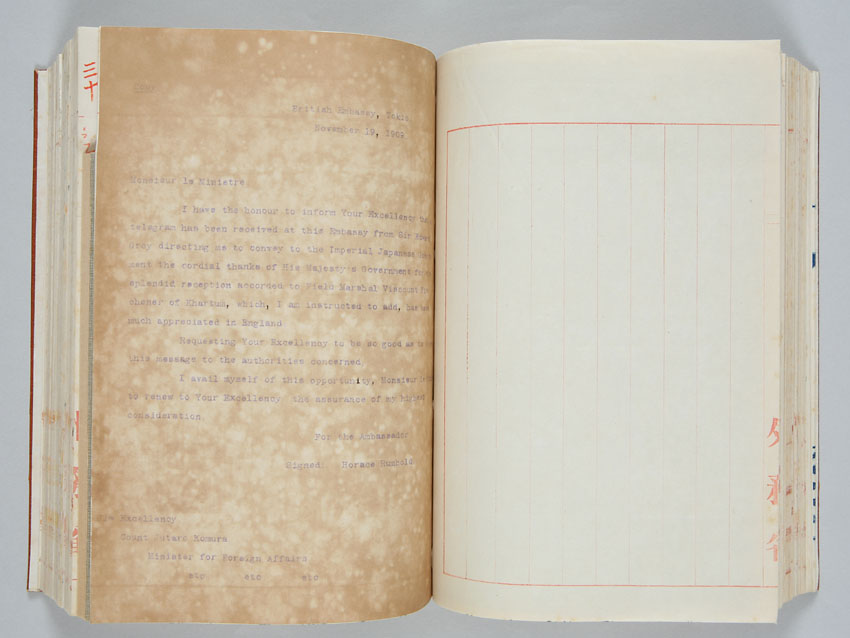 三十
British Embassy, Tokio
November 19, 1909
Monsieur le Ministre
I have the honour to inform Your Excellency
telegram has been received at this Embassy from Sir
Grey directing me to convey to the Imperial Japanese
ment the cordial thanks of His Majesty's Government
splendid reception accorded to Field Marshal Viscount
chener of Khartum, which, I am instructed to add, has
much appreciated in England
Requesting Your Excellency to be so good as to
this message to the authorities concerned.
I avail myself of this opportunity, Monsieur
to renew to Your Excellency the assurance of my highest
consideration.
For the Ambassador
Signed: Horace Rumbold
Excellency
Count Jutaro Komura
Minister for Foreign Affairs
etc etc etc
外務省